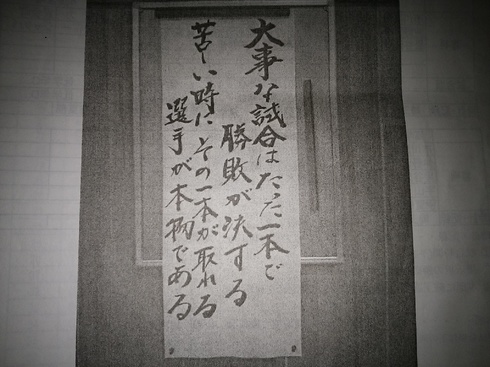 大事な試合はたった一本で
勝敗が決する
苦しい時にその一本が取れる
選手が本物である